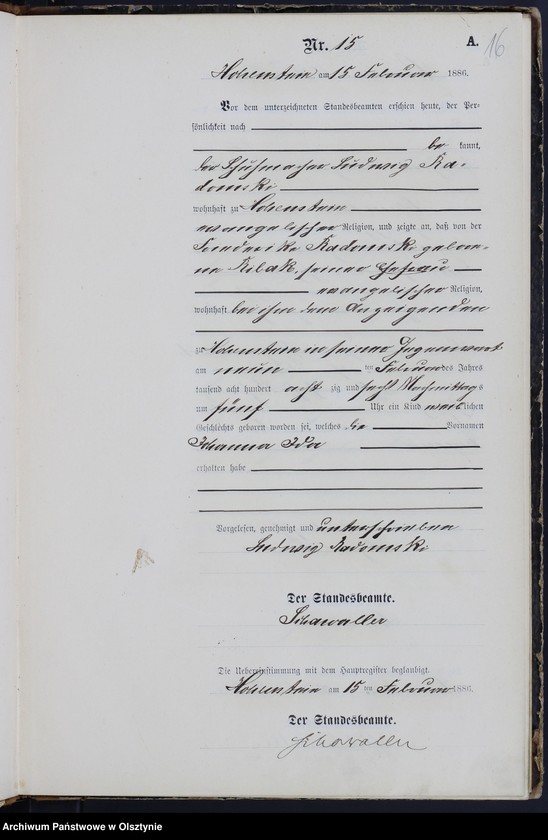 Nr. 15
A.
16
Hohenstein am 15 Februar 1886.
Vor dem unterzeichneten Standesbeamten erschien heute, der Per-
sönlichkeit nach
be kannt,
der Schuhmacher Ludwig Ra-
domski
wohnhaft zu Hohenstein
evangelischer Religion, und zeigte an, daß von der
Friederike Radomski gebore-
ne Kilak, seiner Ehefrau
evangelischer Religion,
wohnhaft bei ihm dem Anzeigenden
zu Hohenstein in seiner Gegenwart
am neun ten Februar des Jahres
tausend acht hundert acht zig und sechs Nachmittags
um fünf Uhr ein Kind weiblichen
Geschlechts geboren worden sei, welches die Vornamen
Johanna Ida
erhalten habe
Vorgelesen, genehmigt und unterschrieben
Ludwig Radomski
Der Standesbeamte.
Schawaller
Die Uebereinstimmung mit dem Hauptregister beglaubigt.
Hohenstein am 15 ten Februar 1886.
Der Standesbeamte.
Schawaller
Archiwum Państwowe w Olsztynie